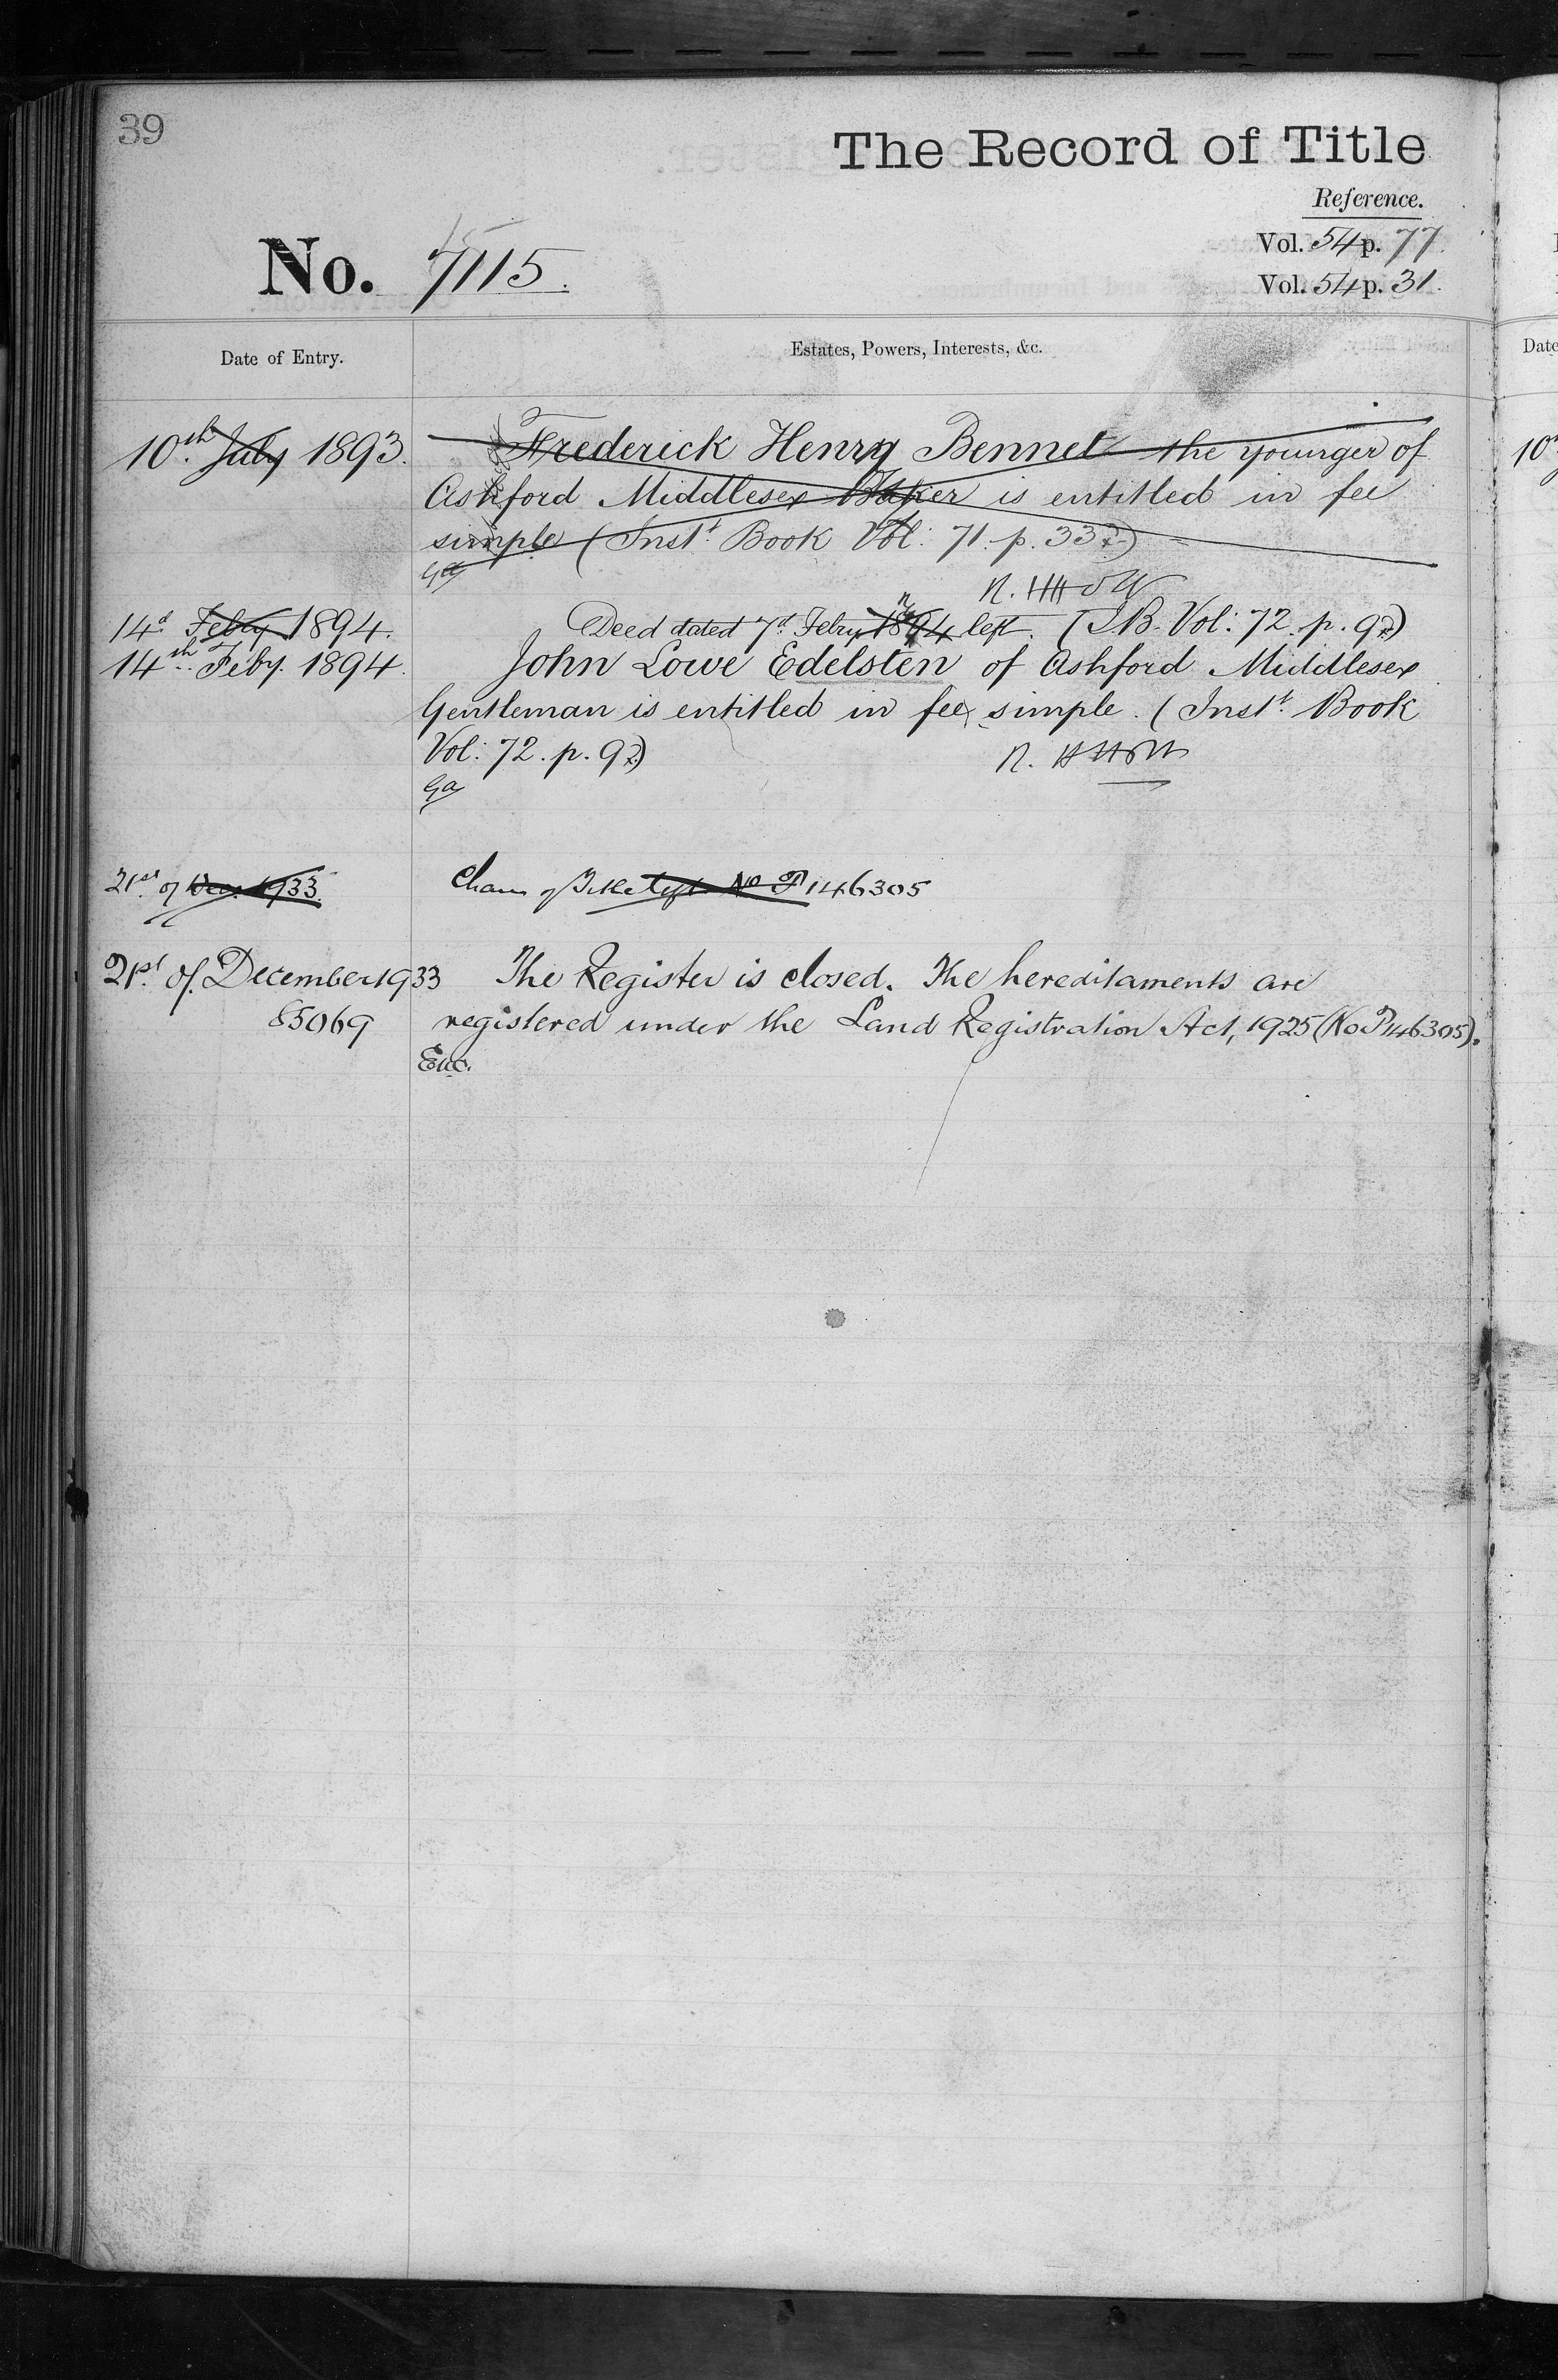 39
The Record of Title
Reference.
No. 7115.
Vol. 54 p. 77.
Vol. 54 p. 31.
Date of Entry.
Estates, Powers, Interests, &c.
10th July 1893. Frederick Henry Bennet the younger of
Ashford Middlesex Baker is entitled in fee
simple (Inst. Book Vol: 71. p. 33)
Ga
14th Feby 1894. Deed dated 7th Feby 1894 left. (I.B. Vol: 72. p. 9)
14th Feby. 1894. John Lowe Edelsten of Ashford Middlesex
Gentleman is entitled in fee simple. (Inst. Book
Vol: 72. p. 9)
Ga
21st of Dec. 1933. of Title No P 146305
21st of December 1933 The Register is closed. The hereditaments are
85069 registered under the Land Registration Act, 1925 (No P 146305).
Date
10